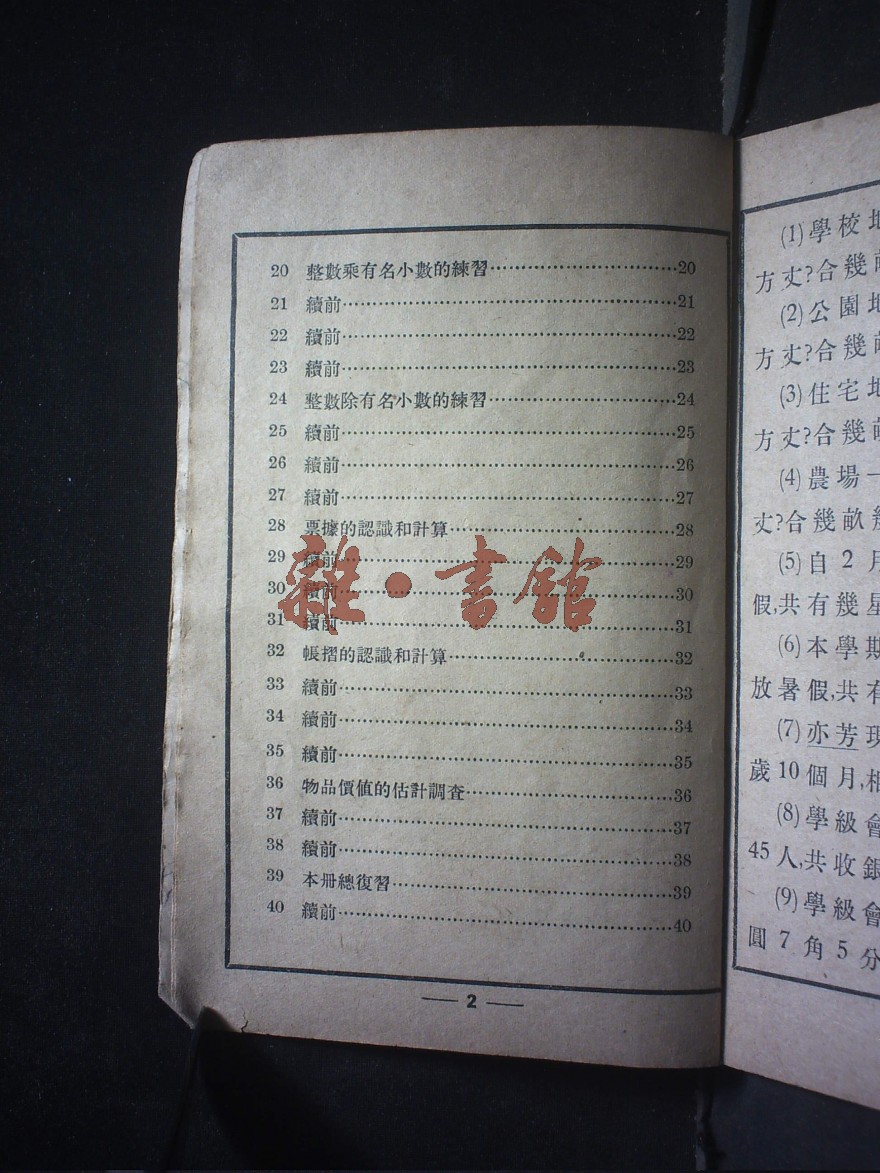 20 整數乘有名小數的練習……20
21 續前……21
22 續前……22
23 續前……23
24 整數除有名小數的練習……24
25 續前……25
26 續前……26
27 續前……27
28 票據的認識和計算……28
29 續前……29
30 續前……30
31 續前……31
32 帳摺的認識和計算……32
33 續前……33
34 續前……34
35 續前……35
36 物品價值的估計調查……36
37 續前……37
38 續前……38
39 本冊總復習……39
40 續前……40
— 2 —
雜·書館
(1)學校地
方丈?合幾畝
(2)公園地
方丈?合幾畝
(3)住宅地
方丈?合幾畝
(4)農場一
丈?合幾畝幾
(5)自2月
假,共有幾星
(6)本學期
放暑假,共有
(7)亦芳現
歲10個月,相
(8)學級會
45人,共收銀
(9)學級會
圓7角5分